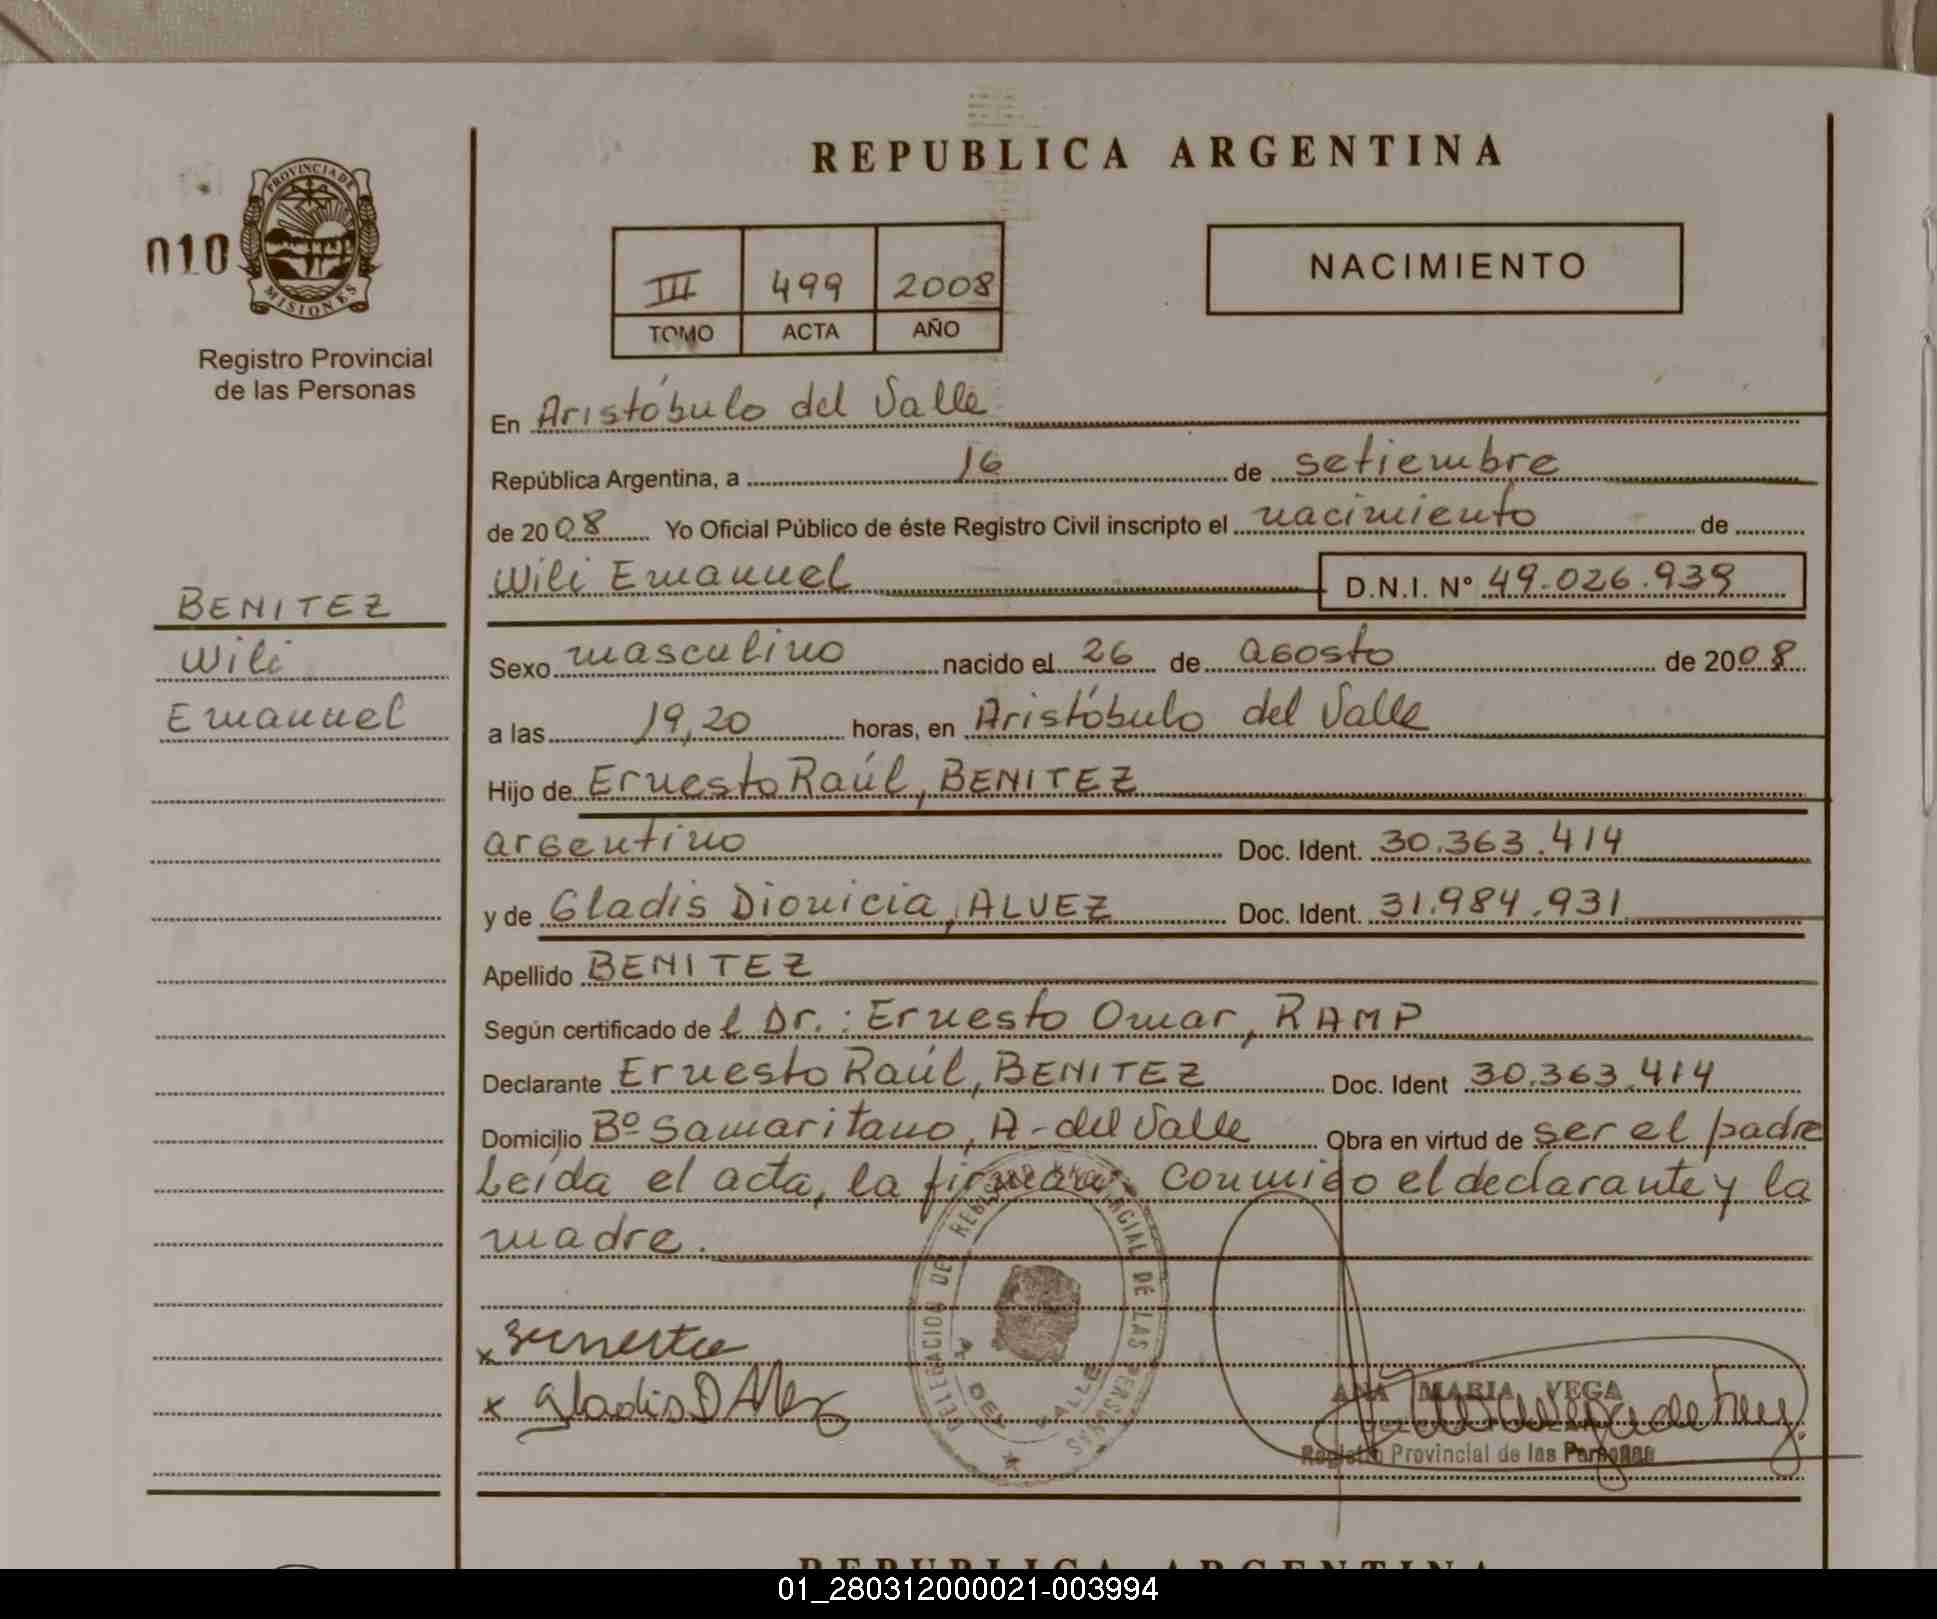 REPUBLICA ARGENTINA
PROVINCIA DE
MISIONES
010
Registro Provincial
de las Personas
III 499 2008
TOMO ACTA AÑO
NACIMIENTO
En Aristóbulo del Valle
República Argentina, a 16 de setiembre
de 2008 Yo Oficial Público de éste Registro Civil inscripto el nacimiento de
Wili Emanuel D.N.I. N° 49.026.939
BENITEZ
Wili
Emanuel
Sexo masculino nacido el 26 de agosto de 2008
a las 19,20 horas, en Aristóbulo del Valle
Hijo de Ernesto Raúl, BENITEZ
argentino Doc. Ident. 30.363.414
y de Gladis Dionicia, ALVEZ Doc. Ident. 31.984.931
Apellido BENITEZ
Según certificado de l Dr.: Ernesto Omar, RAMP
Declarante Ernesto Raúl, BENITEZ Doc. Ident 30.363.414
Domicilio Bº Samaritano, A. del Valle Obra en virtud de ser el padre
Leída el acta, la firman conmigo el declarante y la
madre.
DELEGACION DEL REGISTRO PROVINCIAL DE LAS PERSONAS
A. DEL VALLE
x
x Gladis D Alvez
ANA MARIA VEGA
Registro Provincial de las Personas
REPUBLICA ARGENTINA
01_280312000021-003994